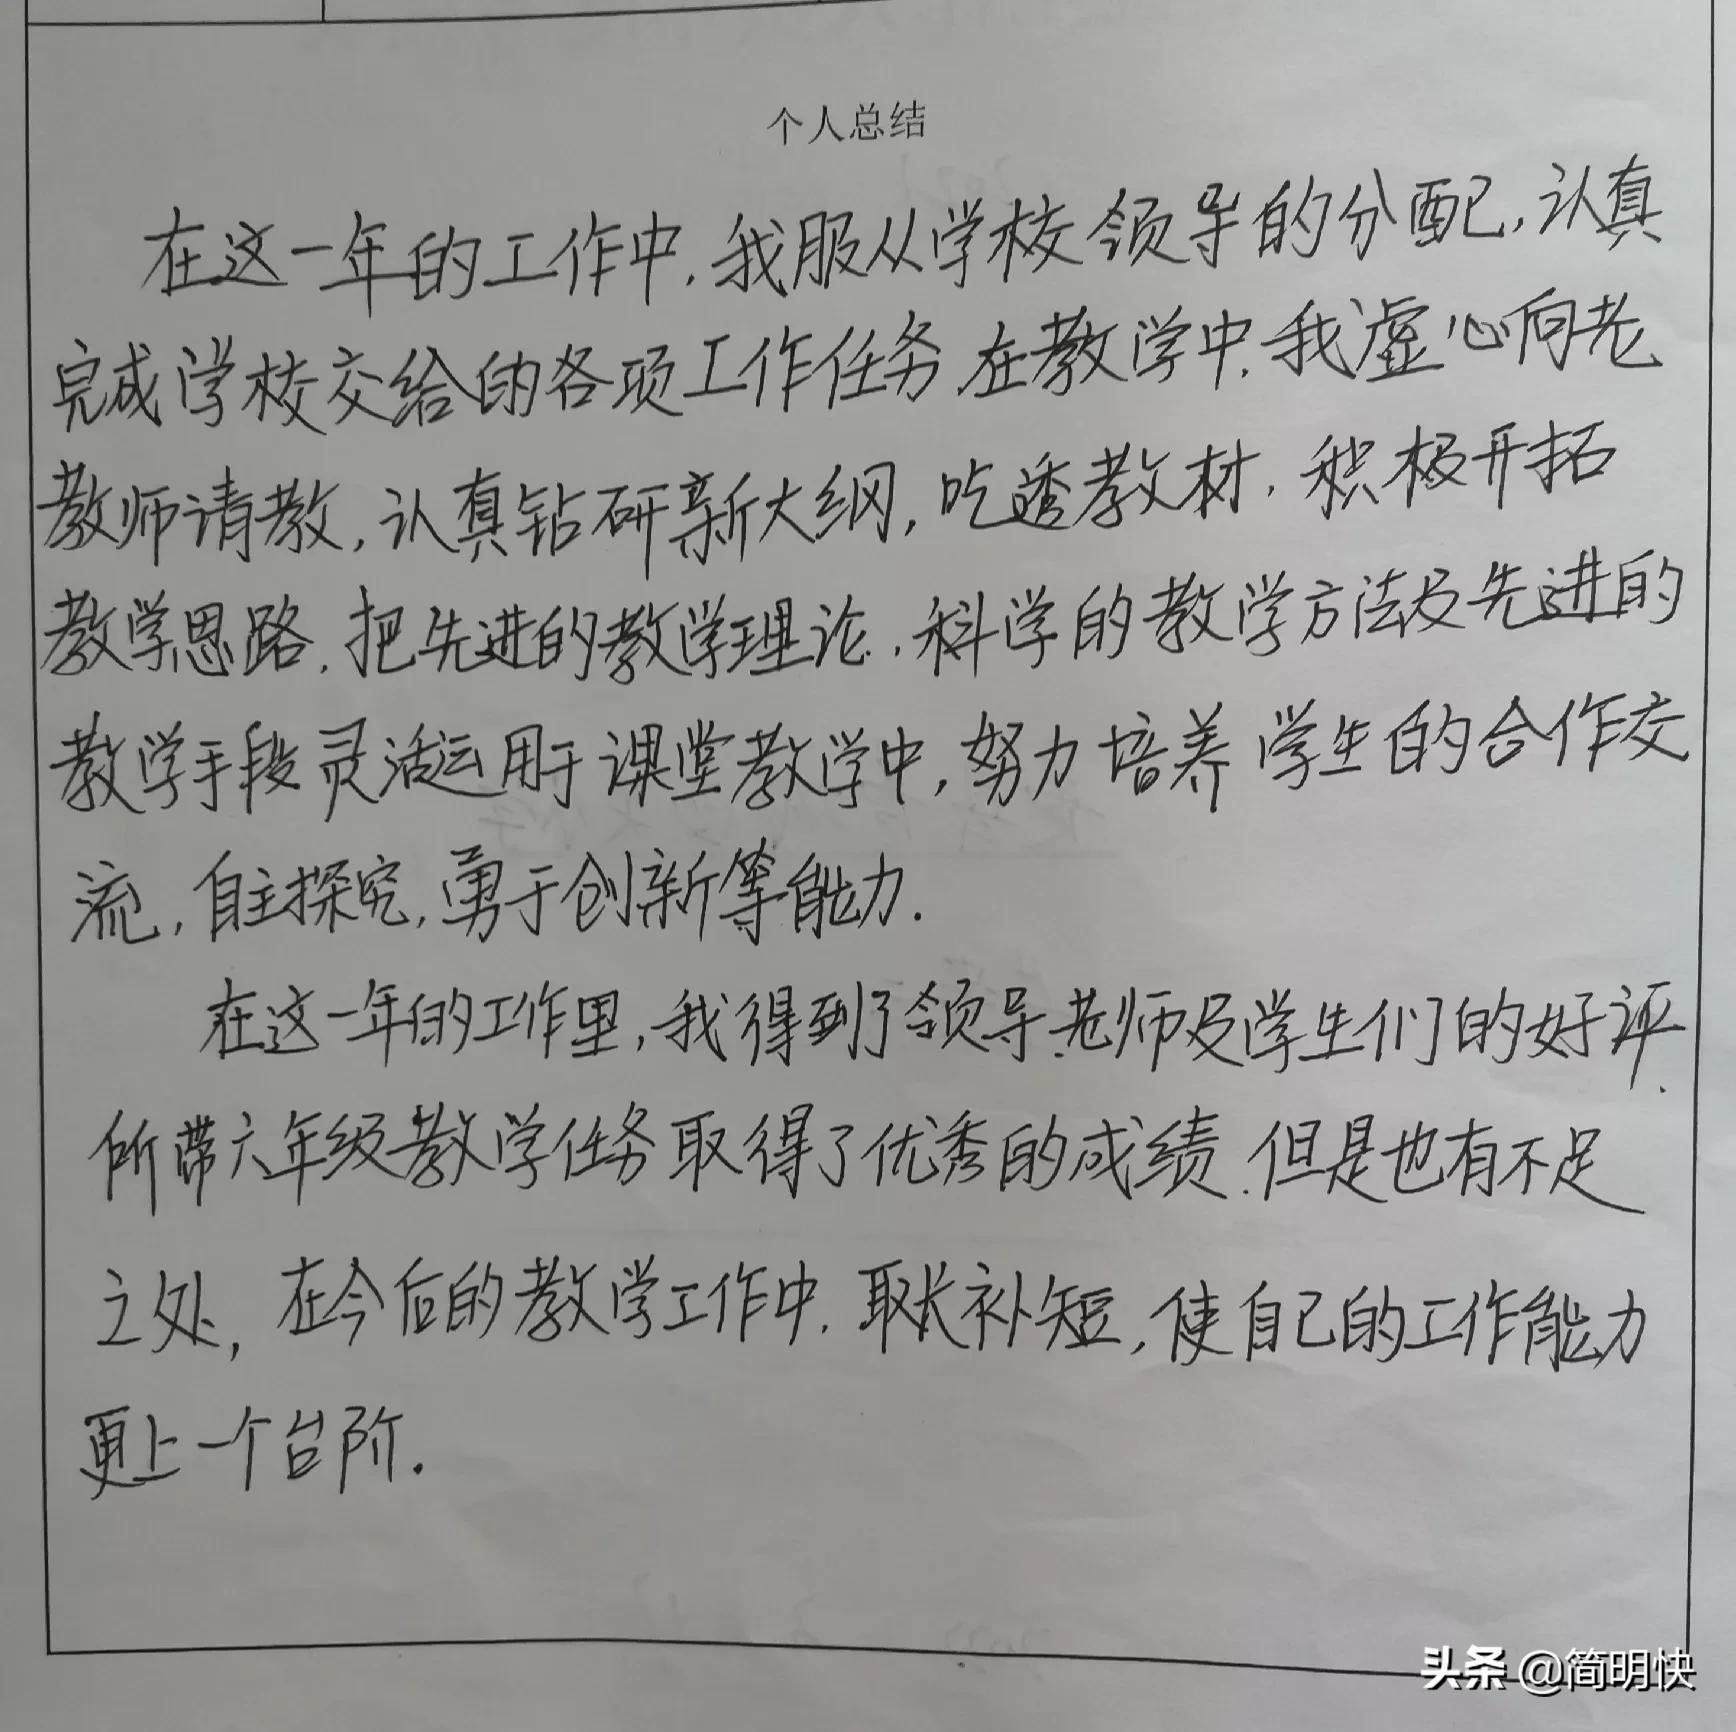 个人总结
在这一年的工作中,我服从学校领导的分配,认真
完成学校交给的各项工作任务.在教学中,我虚心向老
教师请教,认真钻研新大纲,吃透教材,积极开拓
教学思路,把先进的教学理论,科学的教学方法及先进的
教学手段灵活运用于课堂教学中,努力培养学生的合作交
流,自主探究,勇于创新等能力.
在这一年的工作里,我得到了领导.老师及学生们的好评.
所带六年级教学任务取得了优秀的成绩.但是也有不足
之处,在今后的教学工作中,取长补短,使自己的工作能力
更上一个台阶.
头条 @简明快